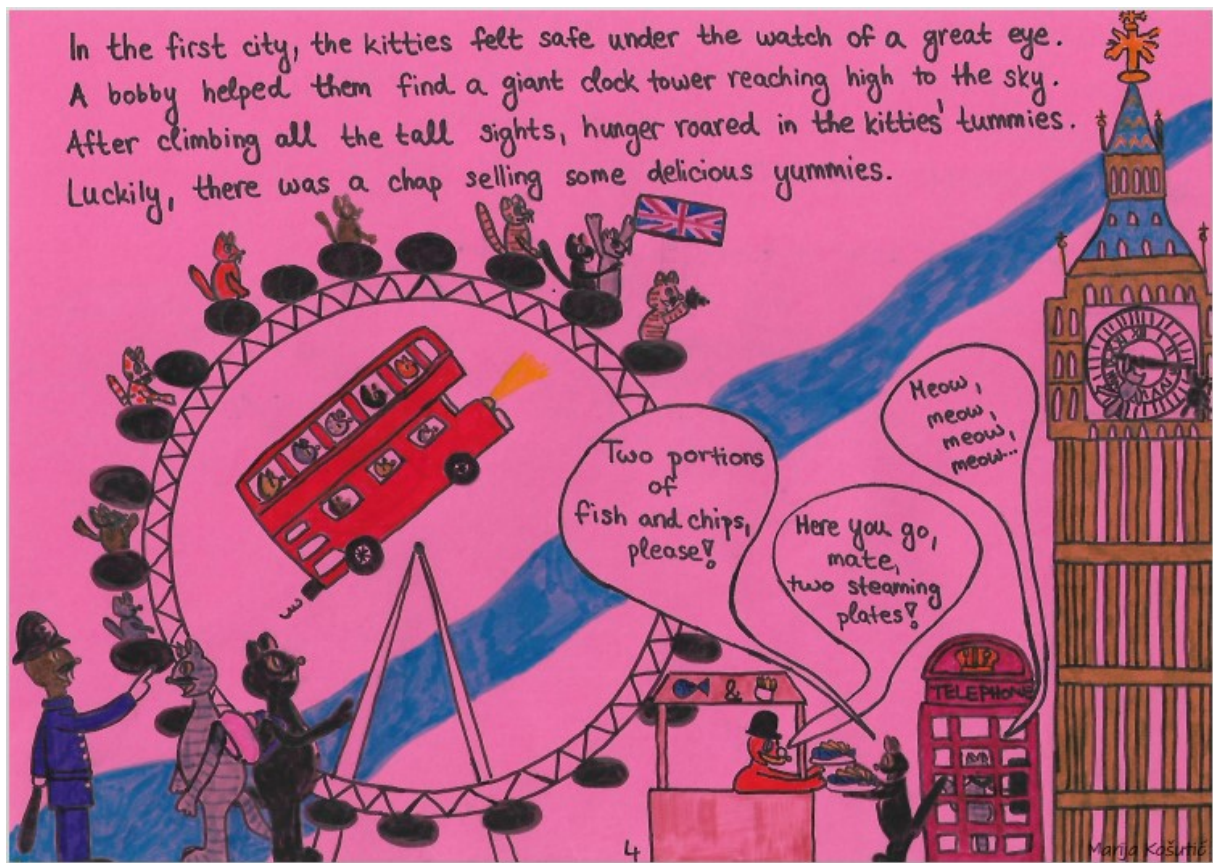 In the first city, the kitties felt safe under the watch of a great eye.
A bobby helped them find a giant clock tower reaching high to the sky.
After climbing all the tall sights, hunger roared in the kitties' tummies.
Luckily, there was a chap selling some delicious yummies.
Meow,
meow,
meow,
meow...
Two portions
of
fish and chips,
please!
Here you go,
mate,
two steaming
plates!
&
TELEPHONE
4
Marija Košutić